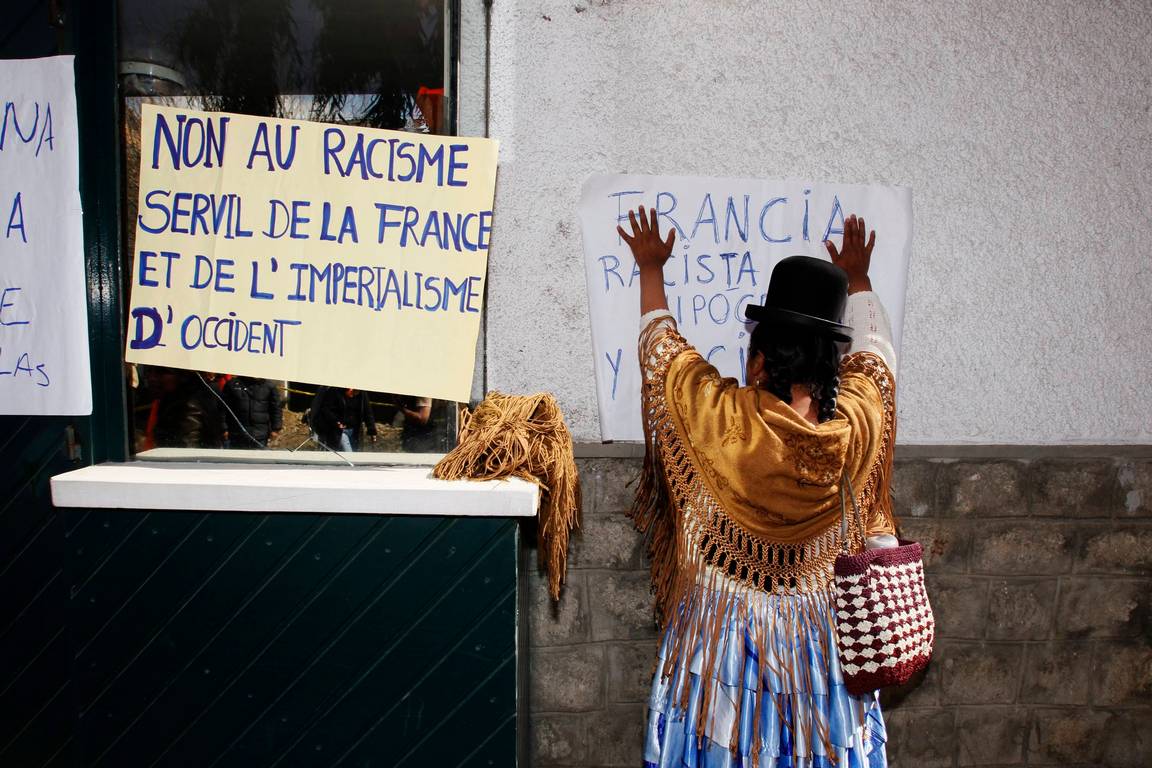 NA
A
E
LAS
NON AU RACISME
SERVIL DE LA FRANCE
ET DE L' IMPERIALISME
D' OCCIDENT
FRANCIA
RACISTA
Y